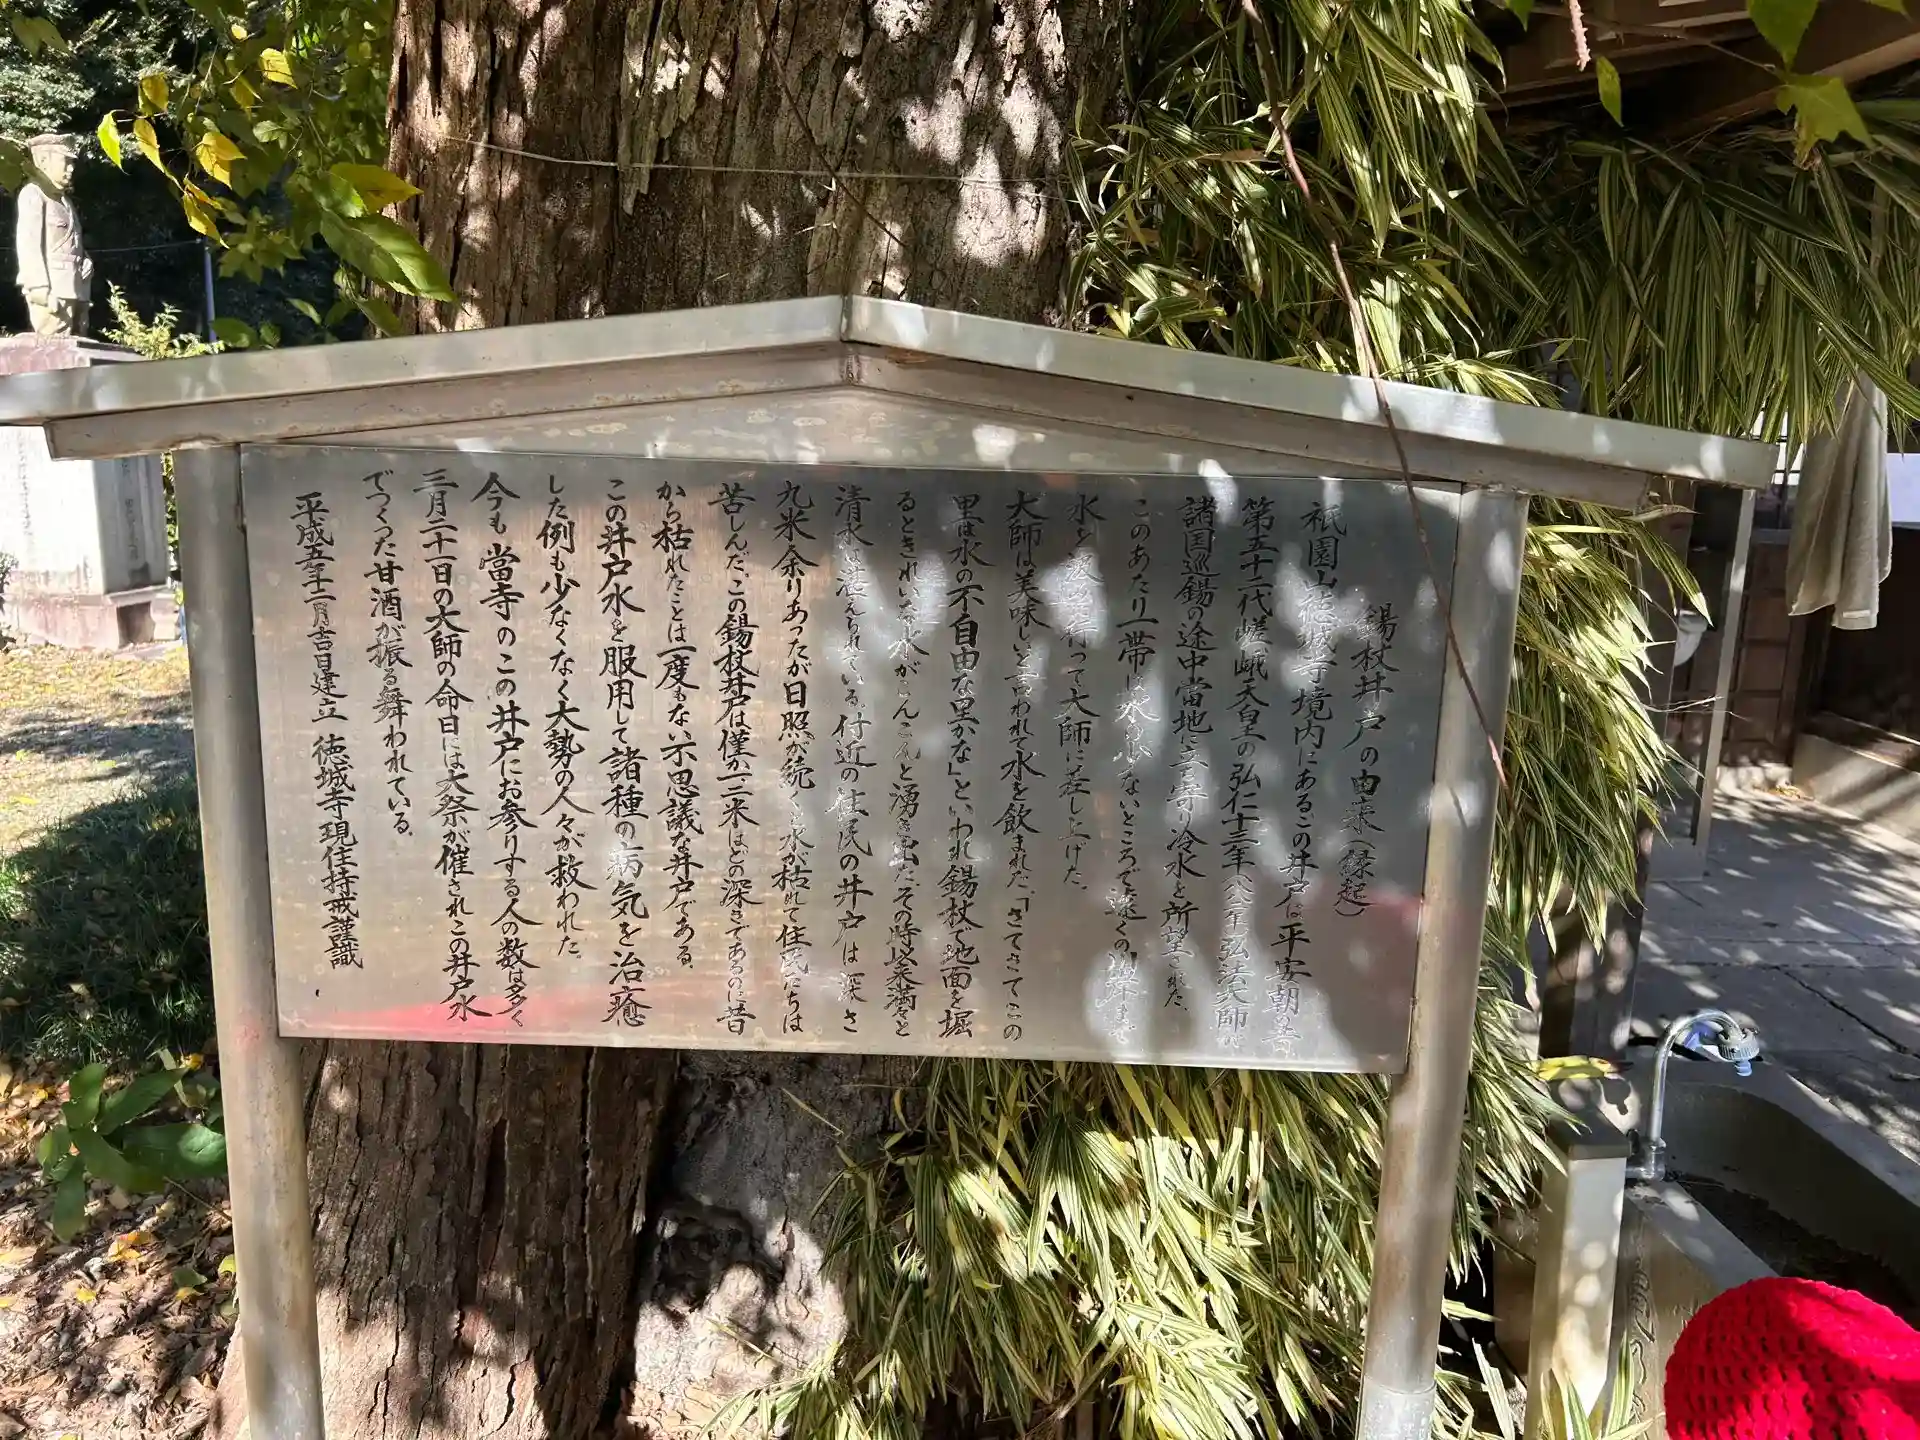 錫杖井戸の由来(縁起)
祇園山徳城寺境内にあるこの井戸は平安朝の昔
第五十二代嵯峨天皇の弘仁十三年八二二年弘法大師は
諸国巡錫の途中當地に立ち寄り冷水を所望された。
このあたり一帯は水の少ないところで遠くの
水を汲みに行って大師に差し上げた。
大師は美味しいと言われて水を飲まれた。「さてさてこの
里は水の不自由な里かな」といわれ錫杖で地面を堀
るときれいな水がこんこんと湧き出た。その時以来満々と
清水は湛えられている。付近の住民の井戸は深さ
九米余りあったが日照が続くと水が枯れて住民たちは
苦しんだ。この錫杖井戸は僅か一二米ほどの深さであるのに昔
から枯れたことは一度もない不思議な井戸である。
この井戸水を服用して諸種の病気を治癒
した例も少なくなく大勢の人々が救われた。
今も當寺のこの井戸にお参りする人の数は多く
三月二十一日の大師の命日には大祭が催されこの井戸水
でつくった甘酒が振る舞われている。
平成五年十二月吉日建立 徳城寺現住持戒謹識